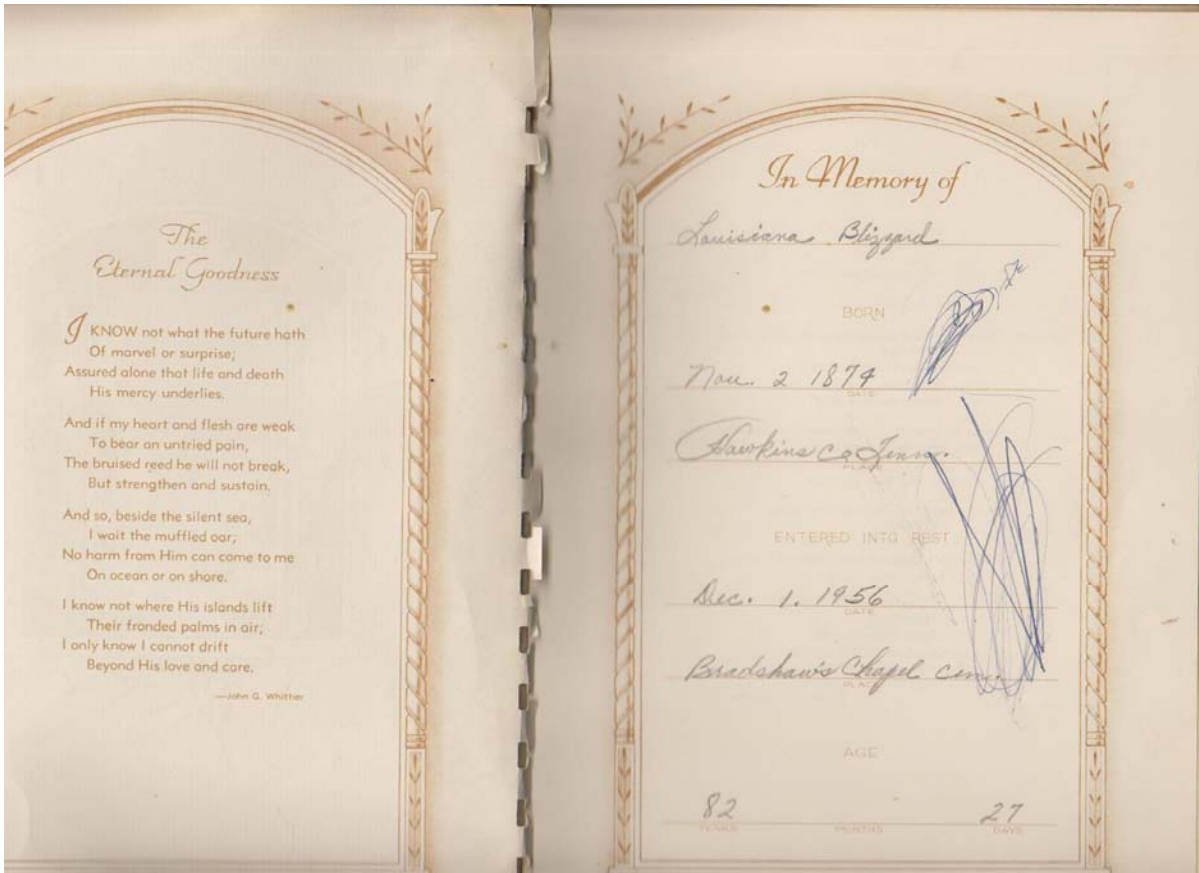 The
Eternal Goodness
I KNOW not what the future hath
Of marvel or surprise;
Assured alone that life and death
His mercy underlies.
And if my heart and flesh are weak
To bear an untried pain,
The bruised reed he will not break,
But strengthen and sustain.
And so, beside the silent sea,
I wait the muffled oar;
No harm from Him can come to me
On ocean or on shore.
I know not where His islands lift
Their fronded palms in air;
I only know I cannot drift
Beyond His love and care.
—John G. Whittier
In Memory of
Louisiana Blizzard
BORN
Nov. 2 1874
DATE
Hawkins Co Tenn.
PLACE
ENTERED INTO REST
Dec. 1. 1956
DATE
Bradshaw's Chapel Cem.
PLACE
AGE
82 27
YEARS MONTHS DAYS